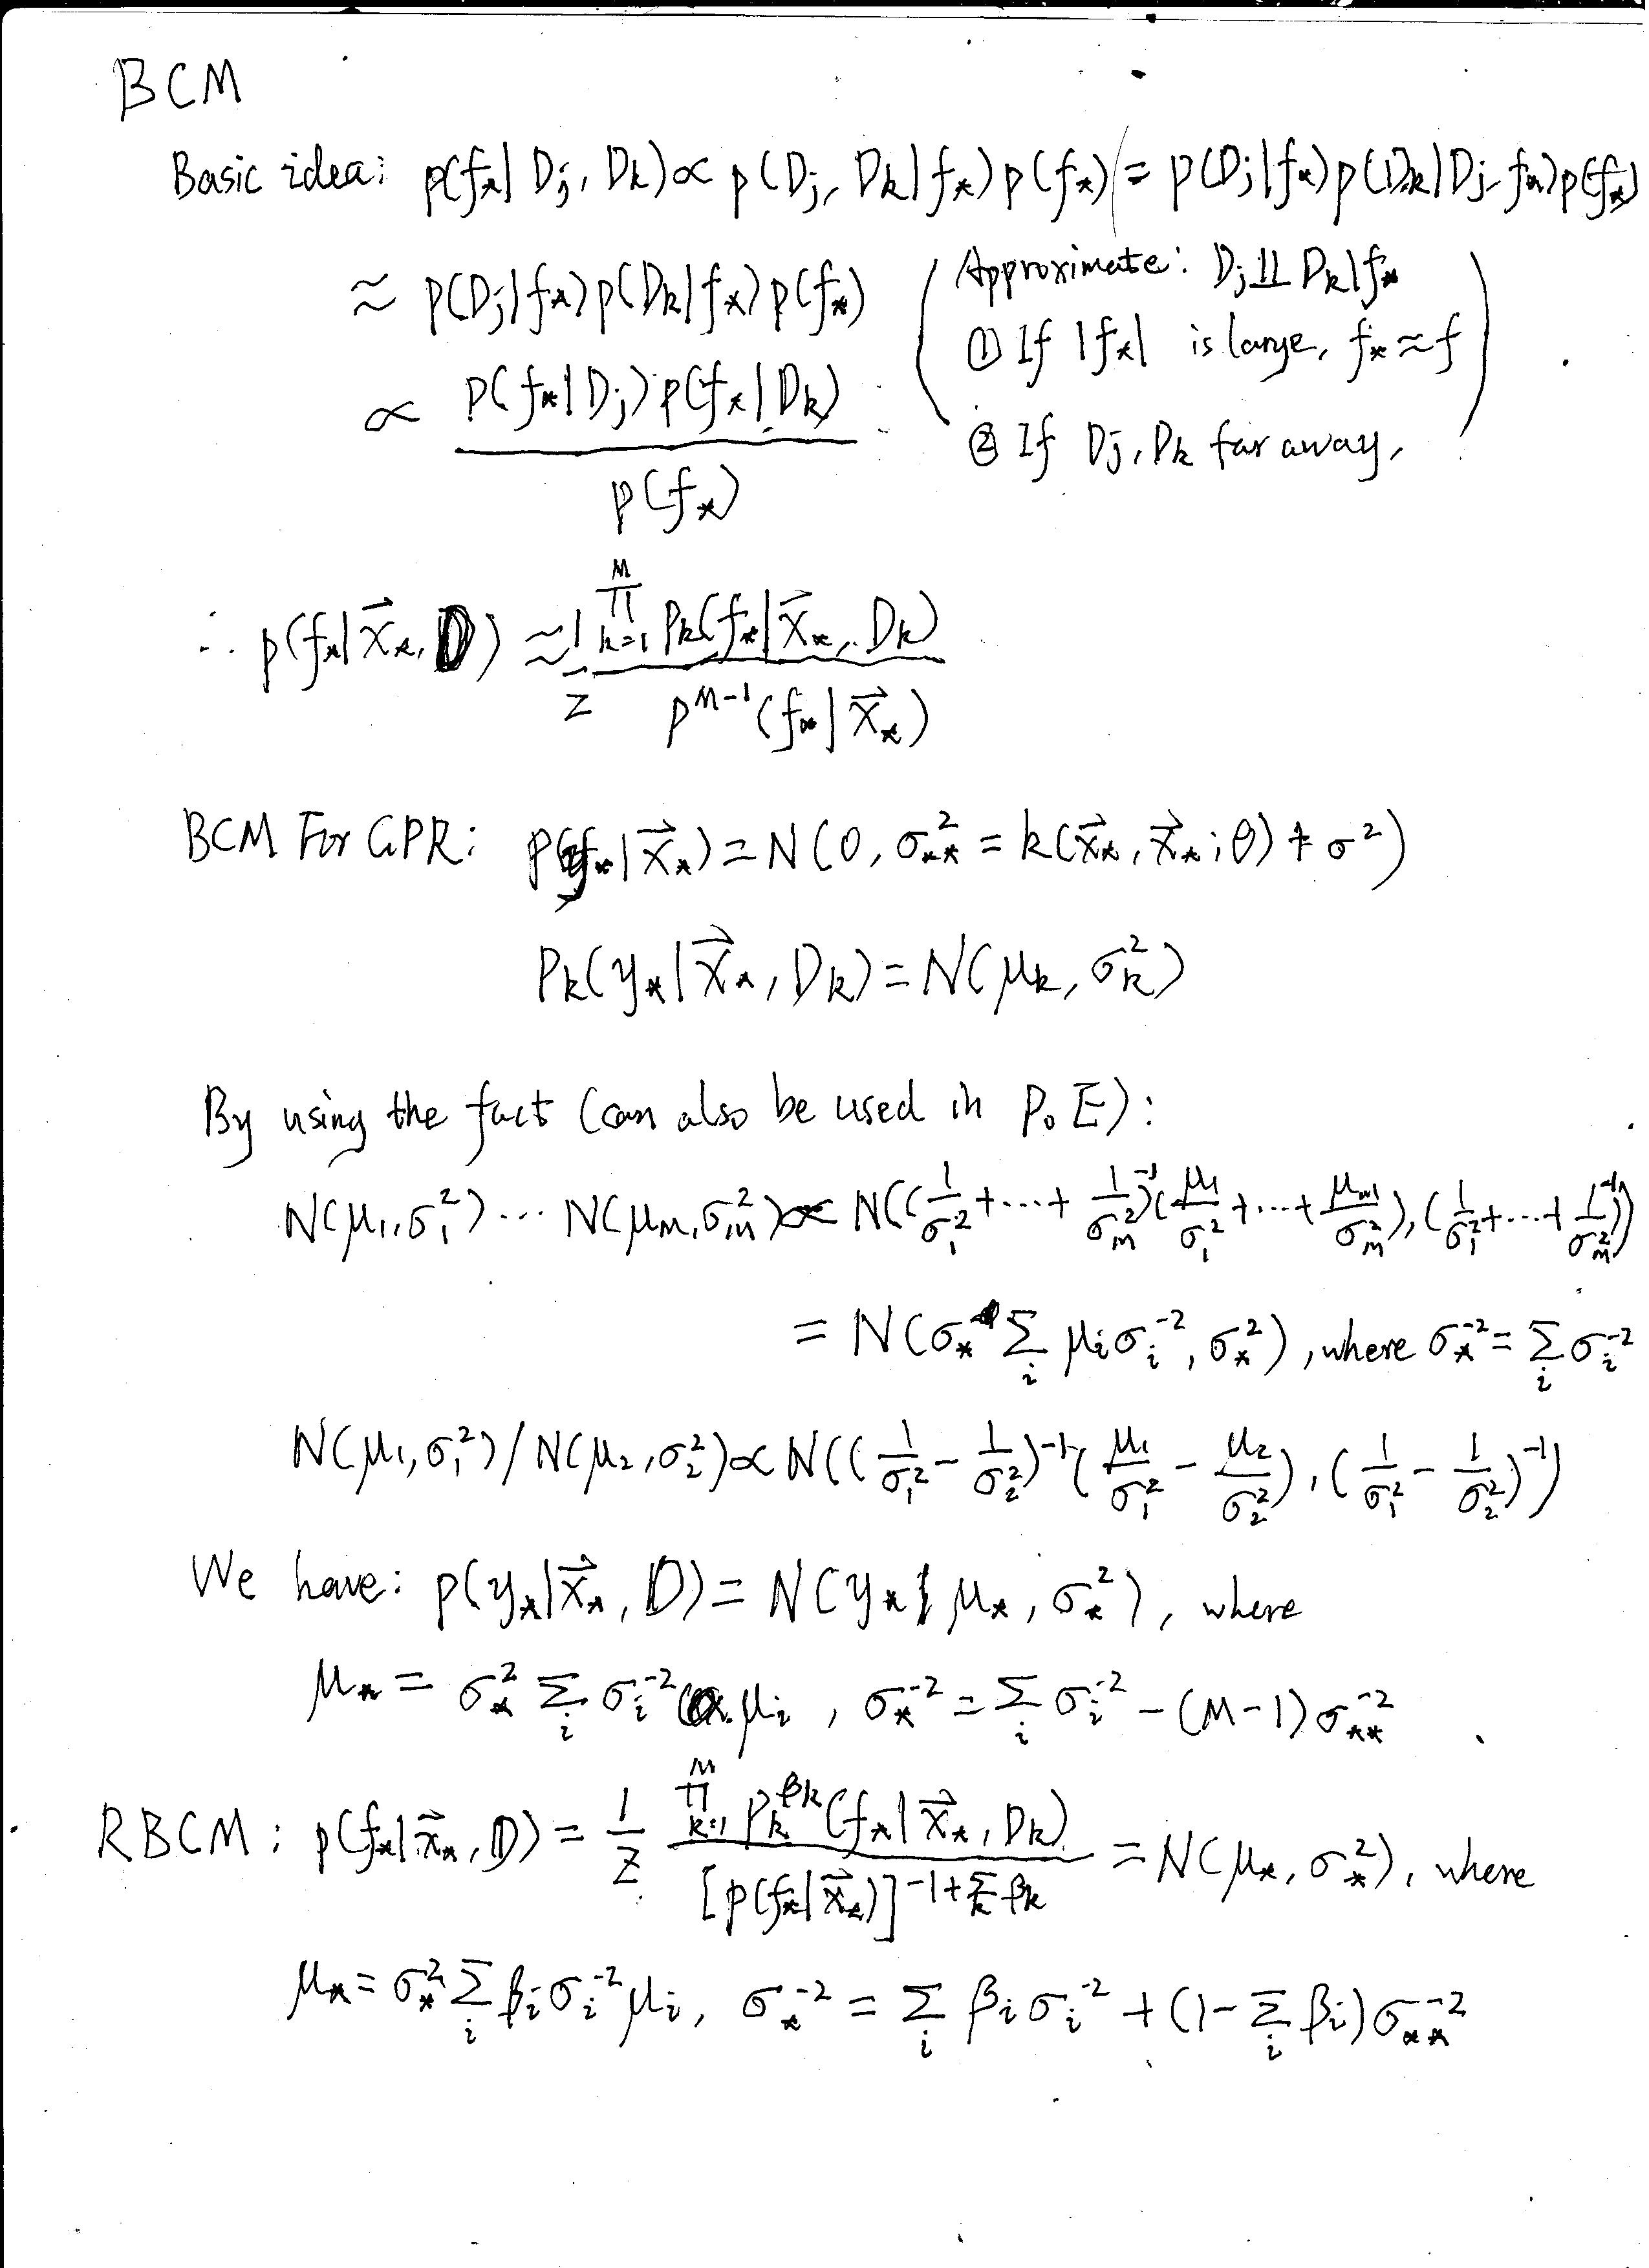 BCM
Basic idea: p(f_*| D_j, D_k) ∝ p(D_j, D_k | f_*) p(f_*) (= p(D_j|f_*) p(D_k|D_j, f_*) p(f_*)
≈ p(D_j|f_*) p(D_k|f_*) p(f_*) (Approximate: D_j ⫫ D_k|f_*
① If |f_*| is large, f_* ≈ f)
∝ p(f_*|D_j) p(f_*|D_k) / p(f_*)
② If D_j, D_k far away,
∴ p(f_*|\vec{x}_*, D) ≈ \frac{1}{Z} \frac{∏_{k=1}^{M} p_k(f_*|\vec{x}_*, D_k)}{p^{M-1}(f_*|\vec{x}_*)}
BCM For GPR: p(y_*|\vec{x}_*) = N(0, σ_{**}^2 = k(\vec{x}_*, \vec{x}_*; θ) + σ^2)
P_k(y_*|\vec{x}_*, D_k) = N(μ_k, σ_k^2)
By using the fact (can also be used in PoE):
N(μ_1, σ_1^2) ··· N(μ_m, σ_m^2) ∝ N((\frac{1}{σ_1^2} + ··· + \frac{1}{σ_m^2})^{-1}(\frac{μ_1}{σ_1^2} + ··· + \frac{μ_m}{σ_m^2}), (\frac{1}{σ_1^2} + ··· + \frac{1}{σ_m^2})^{-1})
= N(σ_* Σ_i μ_i σ_i^{-2}, σ_*^2), where σ_*^{-2} = Σ_i σ_i^{-2}
N(μ_1, σ_1^2) / N(μ_2, σ_2^2) ∝ N((\frac{1}{σ_1^2} - \frac{1}{σ_2^2})^{-1}(\frac{μ_1}{σ_1^2} - \frac{μ_2}{σ_2^2}), (\frac{1}{σ_1^2} - \frac{1}{σ_2^2})^{-1})
We have: p(y_*|\vec{x}_*, D) = N(y_*| μ_*, σ_*^2), where
μ_* = σ_*^2 Σ_i σ_i^{-2} μ_i, σ_*^{-2} = Σ_i σ_i^{-2} - (M-1) σ_{**}^{-2}
RBCM: p(f_*|\vec{x}_*, D) = \frac{1}{Z} \frac{∏_{k=1}^{M} p_k^{β_k}(f_*|\vec{x}_*, D_k)}{[p(f_*|\vec{x}_*)]^{-1+Σ_k β_k}} = N(μ_*, σ_*^2), where
μ_* = σ_*^2 Σ_i β_i σ_i^{-2} μ_i, σ_*^{-2} = Σ_i β_i σ_i^{-2} + (1 - Σ_i β_i) σ_{**}^{-2}